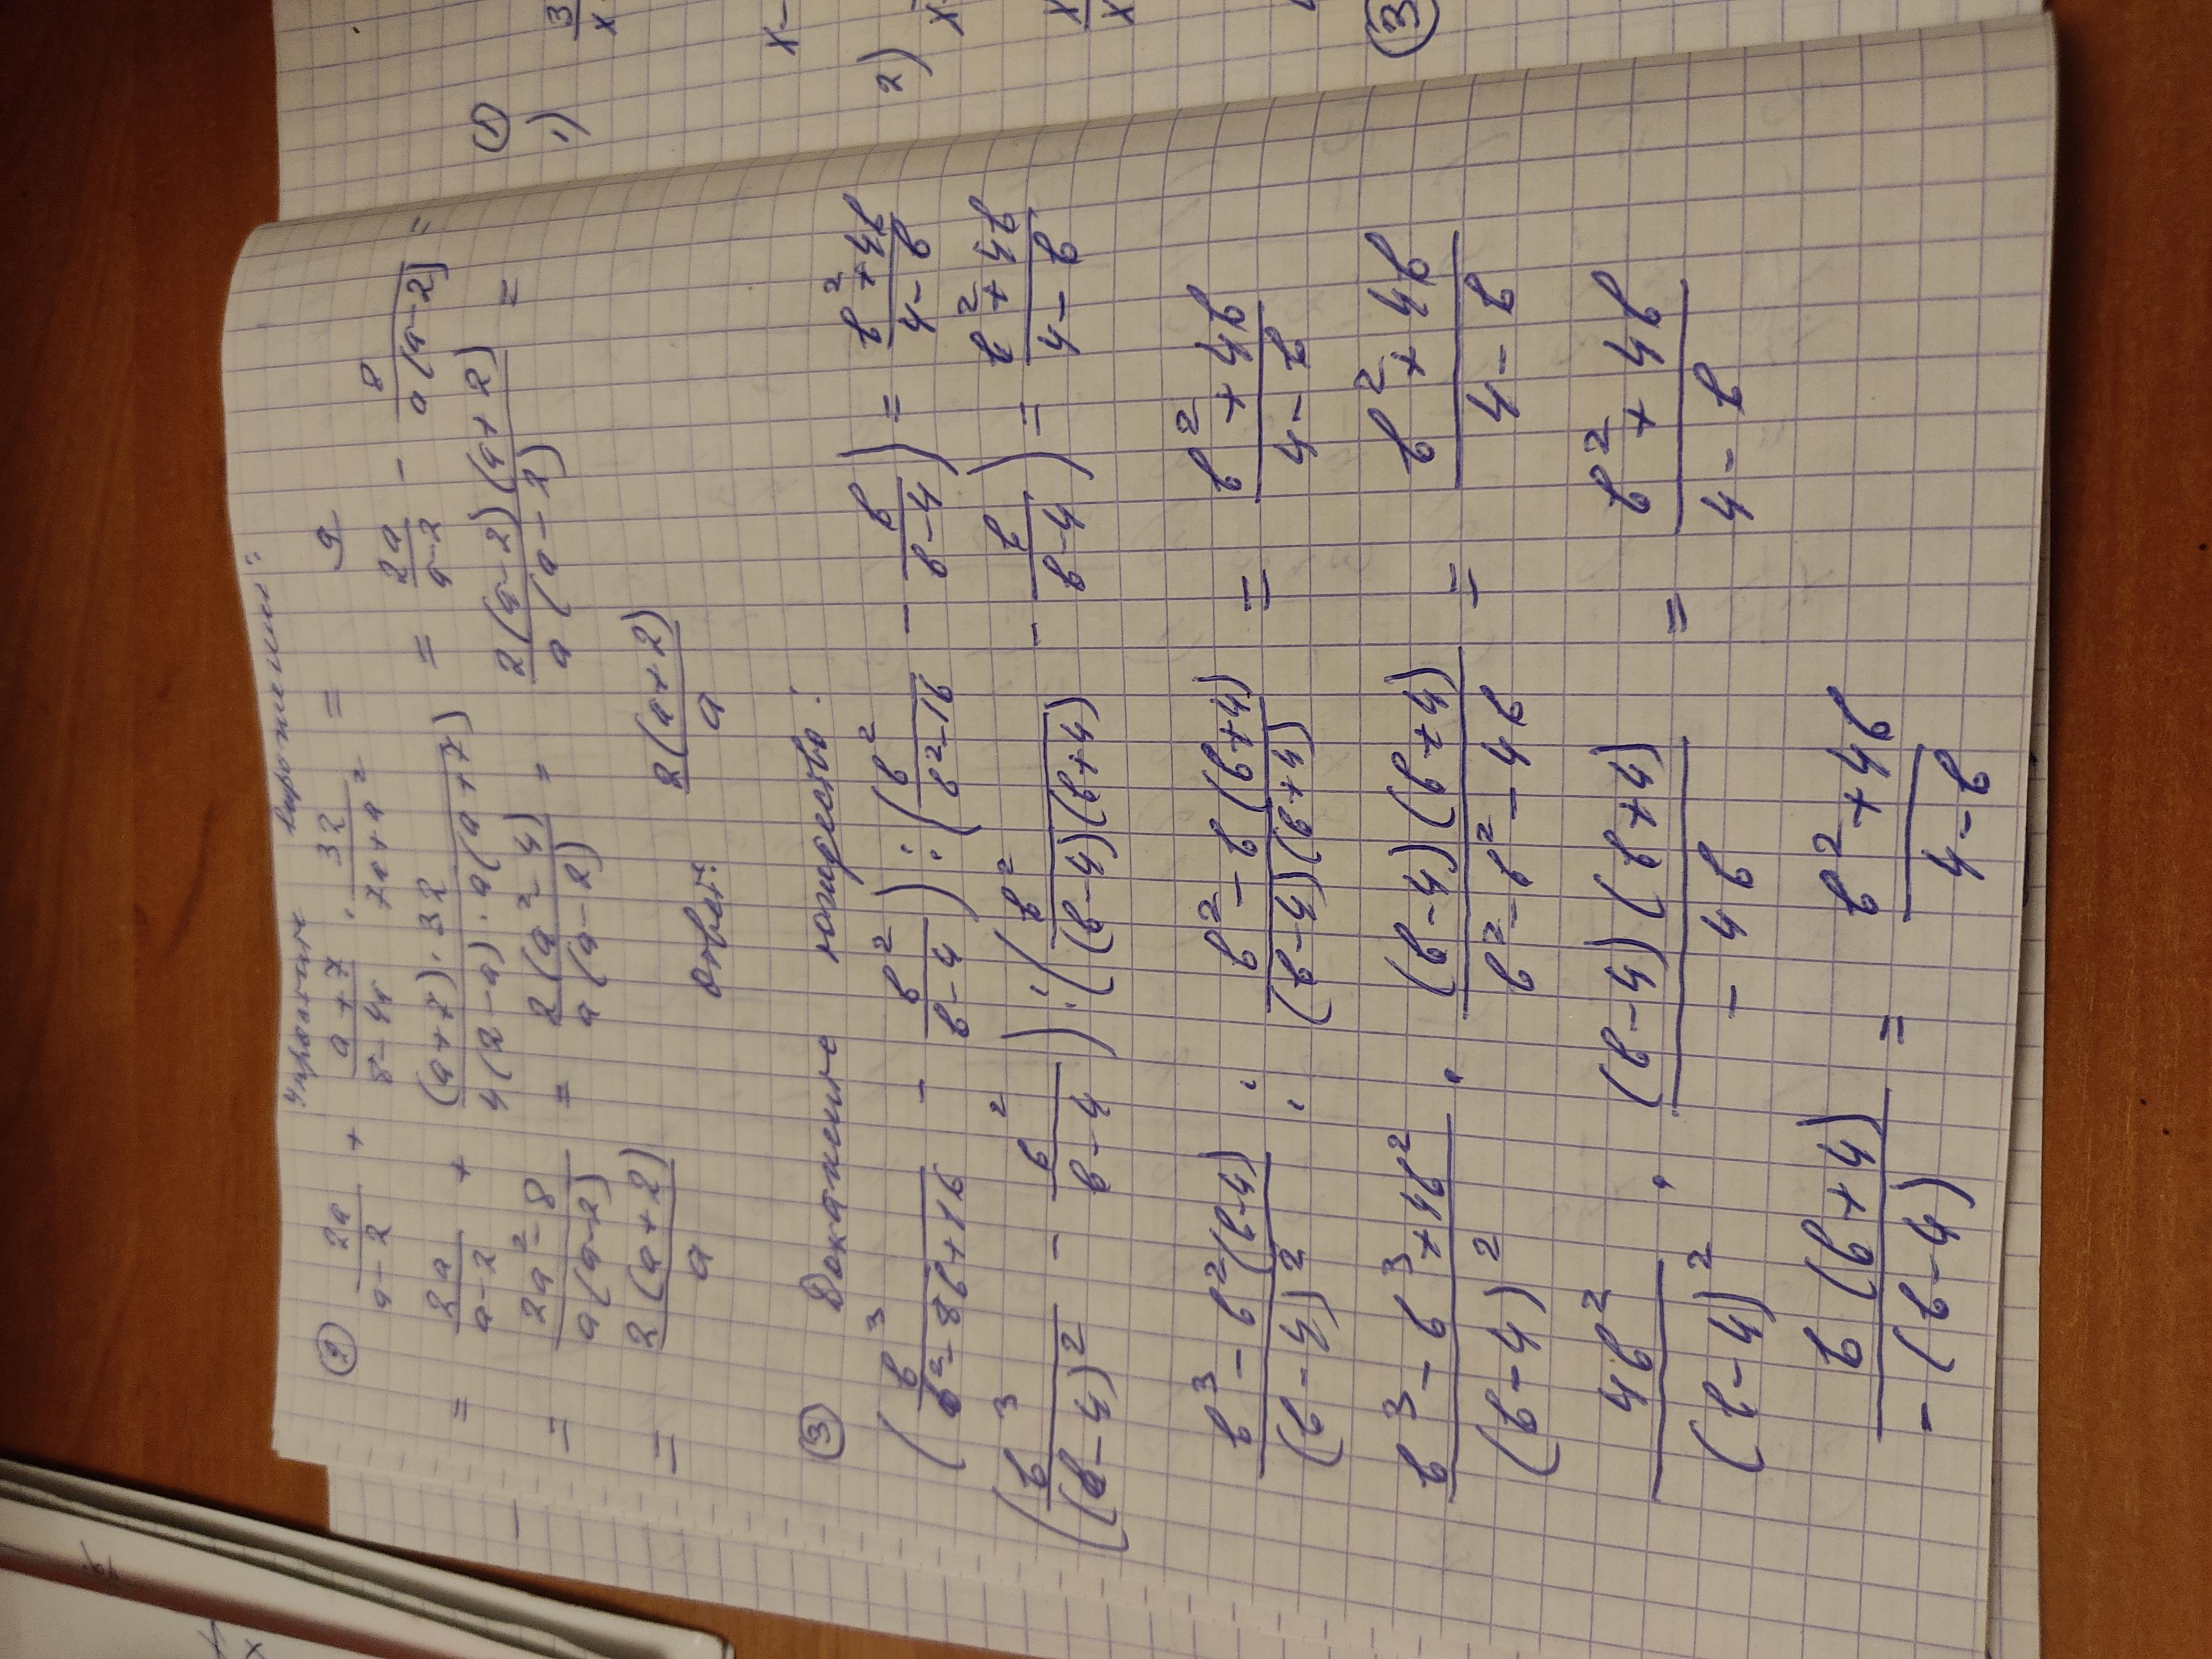 Упростите выражения:
② 2a/(a-2) + (a+7)/(8-4a) · 32/(7a+a²) =
= 2a/(a-2) + ((a+7)·32)/(4(2-a)·a(a+7)) = 2a/(a-2) - 8/(a(a-2)) =
= (2a²-8)/(a(a-2)) = 2(a²-4)/(a(a-2)) = 2(a-2)(a+2)/(a(a-2)) =
= 2(a+2)/a Ответ: 2(a+2)/a
③ Докажите тождество:
(b³/(b²-8b+16) - b²/(b-4)) : (b²/(b²-16) - b/(b-4)) = (b²+4b)/(4-b)
(b³/(b-4)² - b²/(b-4)) : (b²/((b-4)(b+4)) - b/(b-4)) = (b²+4b)/(4-b)
(b³-b²(b-4))/(b-4)² : (b²-b(b+4))/((b-4)(b+4)) = (b²+4b)/(4-b)
(b³-b³+4b²)/(b-4)² · ((b-4)(b+4))/(b²-b²-4b) = (b²+4b)/(4-b)
4b²/(b-4)² · ((b-4)(b+4))/(-4b) = (b²+4b)/(4-b)
b(b+4)/(-(b-4)) = (b²+4b)/(4-b)
①
1) 3/x
x-
2) x
x/x
③